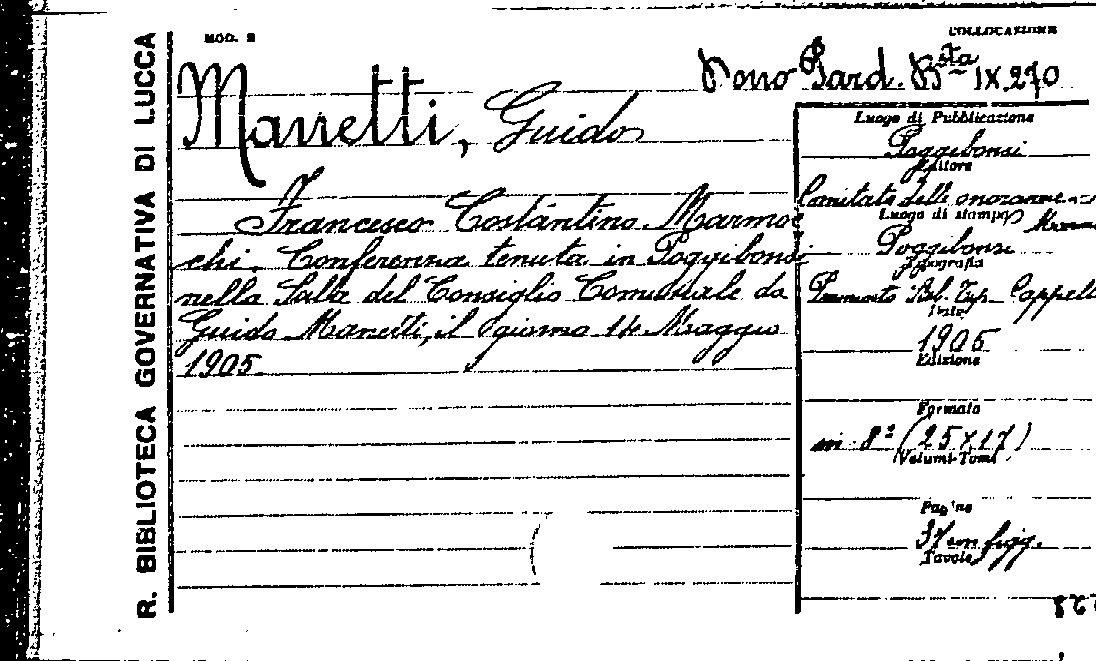 R. BIBLIOTECA GOVERNATIVA DI LUCCA
MOD. 2
COLLOCAZIONE
Dono Pard. Bsta IX.270
Manetti, Guido
Francesco Costantino Marmoc
chi. Conferenza tenuta in Poggibonsi
nella Sala del Consiglio Comunale da
Guido Manetti, il giorno 14 Maggio
1905
Luogo di Pubblicazione
Poggibonsi
Editore
Comitato delle onoranze
Luogo di stampa
Poggibonsi
Tipografia
Stab. Tip. Cappelli
Data
1905
Edizione
Formato
in 8º (25×17)
Volumi-Tomi
Pagine
37 con figg.
Tavole